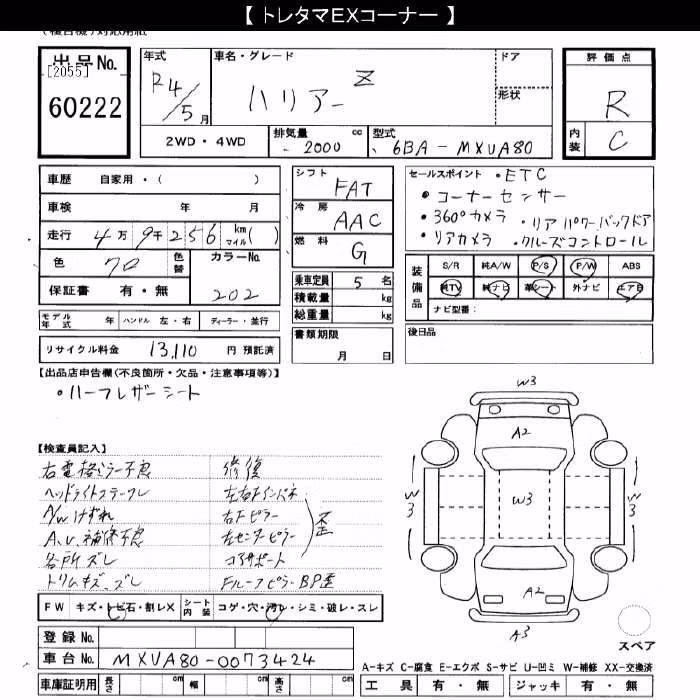 【 トレタマEXコーナー 】
出品No.
[2055]
60222
年式
R4/5月
車名・グレード
ハリアー Z
ドア
形状
評価点
R
内装 C
2WD・4WD
排気量 2000 cc
型式 6BA-MXUA80
車歴 自家用・( )
車検 年 月
走行 4万9千256 km マイル( )
色 70 色替
カラーNo. 202
保証書 有・無
モデル年式 年 ハンドル 左・右 ディーラー・並行
リサイクル料金 13,110 円 預託済
シフト FAT
冷房 AAC
燃料 G
乗車定員 5 名
積載量 kg
総重量 kg
書類期限
月 日
セールスポイント ・ETC
・コーナーセンサー
・360°カメラ ・リアパワーバックドア
・リアカメラ ・クルーズコントロール
装備品
S/R 純A/W P/S P/W ABS
純TV 純ナビ 革シート 外ナビ エアB
ナビ型番:
後日品
【出品店申告欄(不良箇所・欠品・注意事項等)】
・ハーフレザーシート
【検査員記入】
右電格ミラー不良
ヘッドライトステーズレ
A/Wけずれ
A,U,補修不良
各所ズレ
トリムキズ、ズレ
修復
左右Fインパネ
右Fピラー
左センターピラー
コアサポート
歪
Fルーフピラ・BP歪
W3
A2
W3
W3
W3
A2
A3
スペア
FW キズ・トビ石・割レX シート内装 コゲ・穴・汚レ・シミ・破レ・スレ
登録No.
車台No. MXUA80-0073424
車庫証明用 長さ cm 幅 cm 高さ cm
A-キズ C-腐食 E-エクボ S-サビ U-凹ミ W-補修 XX-交換済
工具 有・無 ジャッキ 有・無